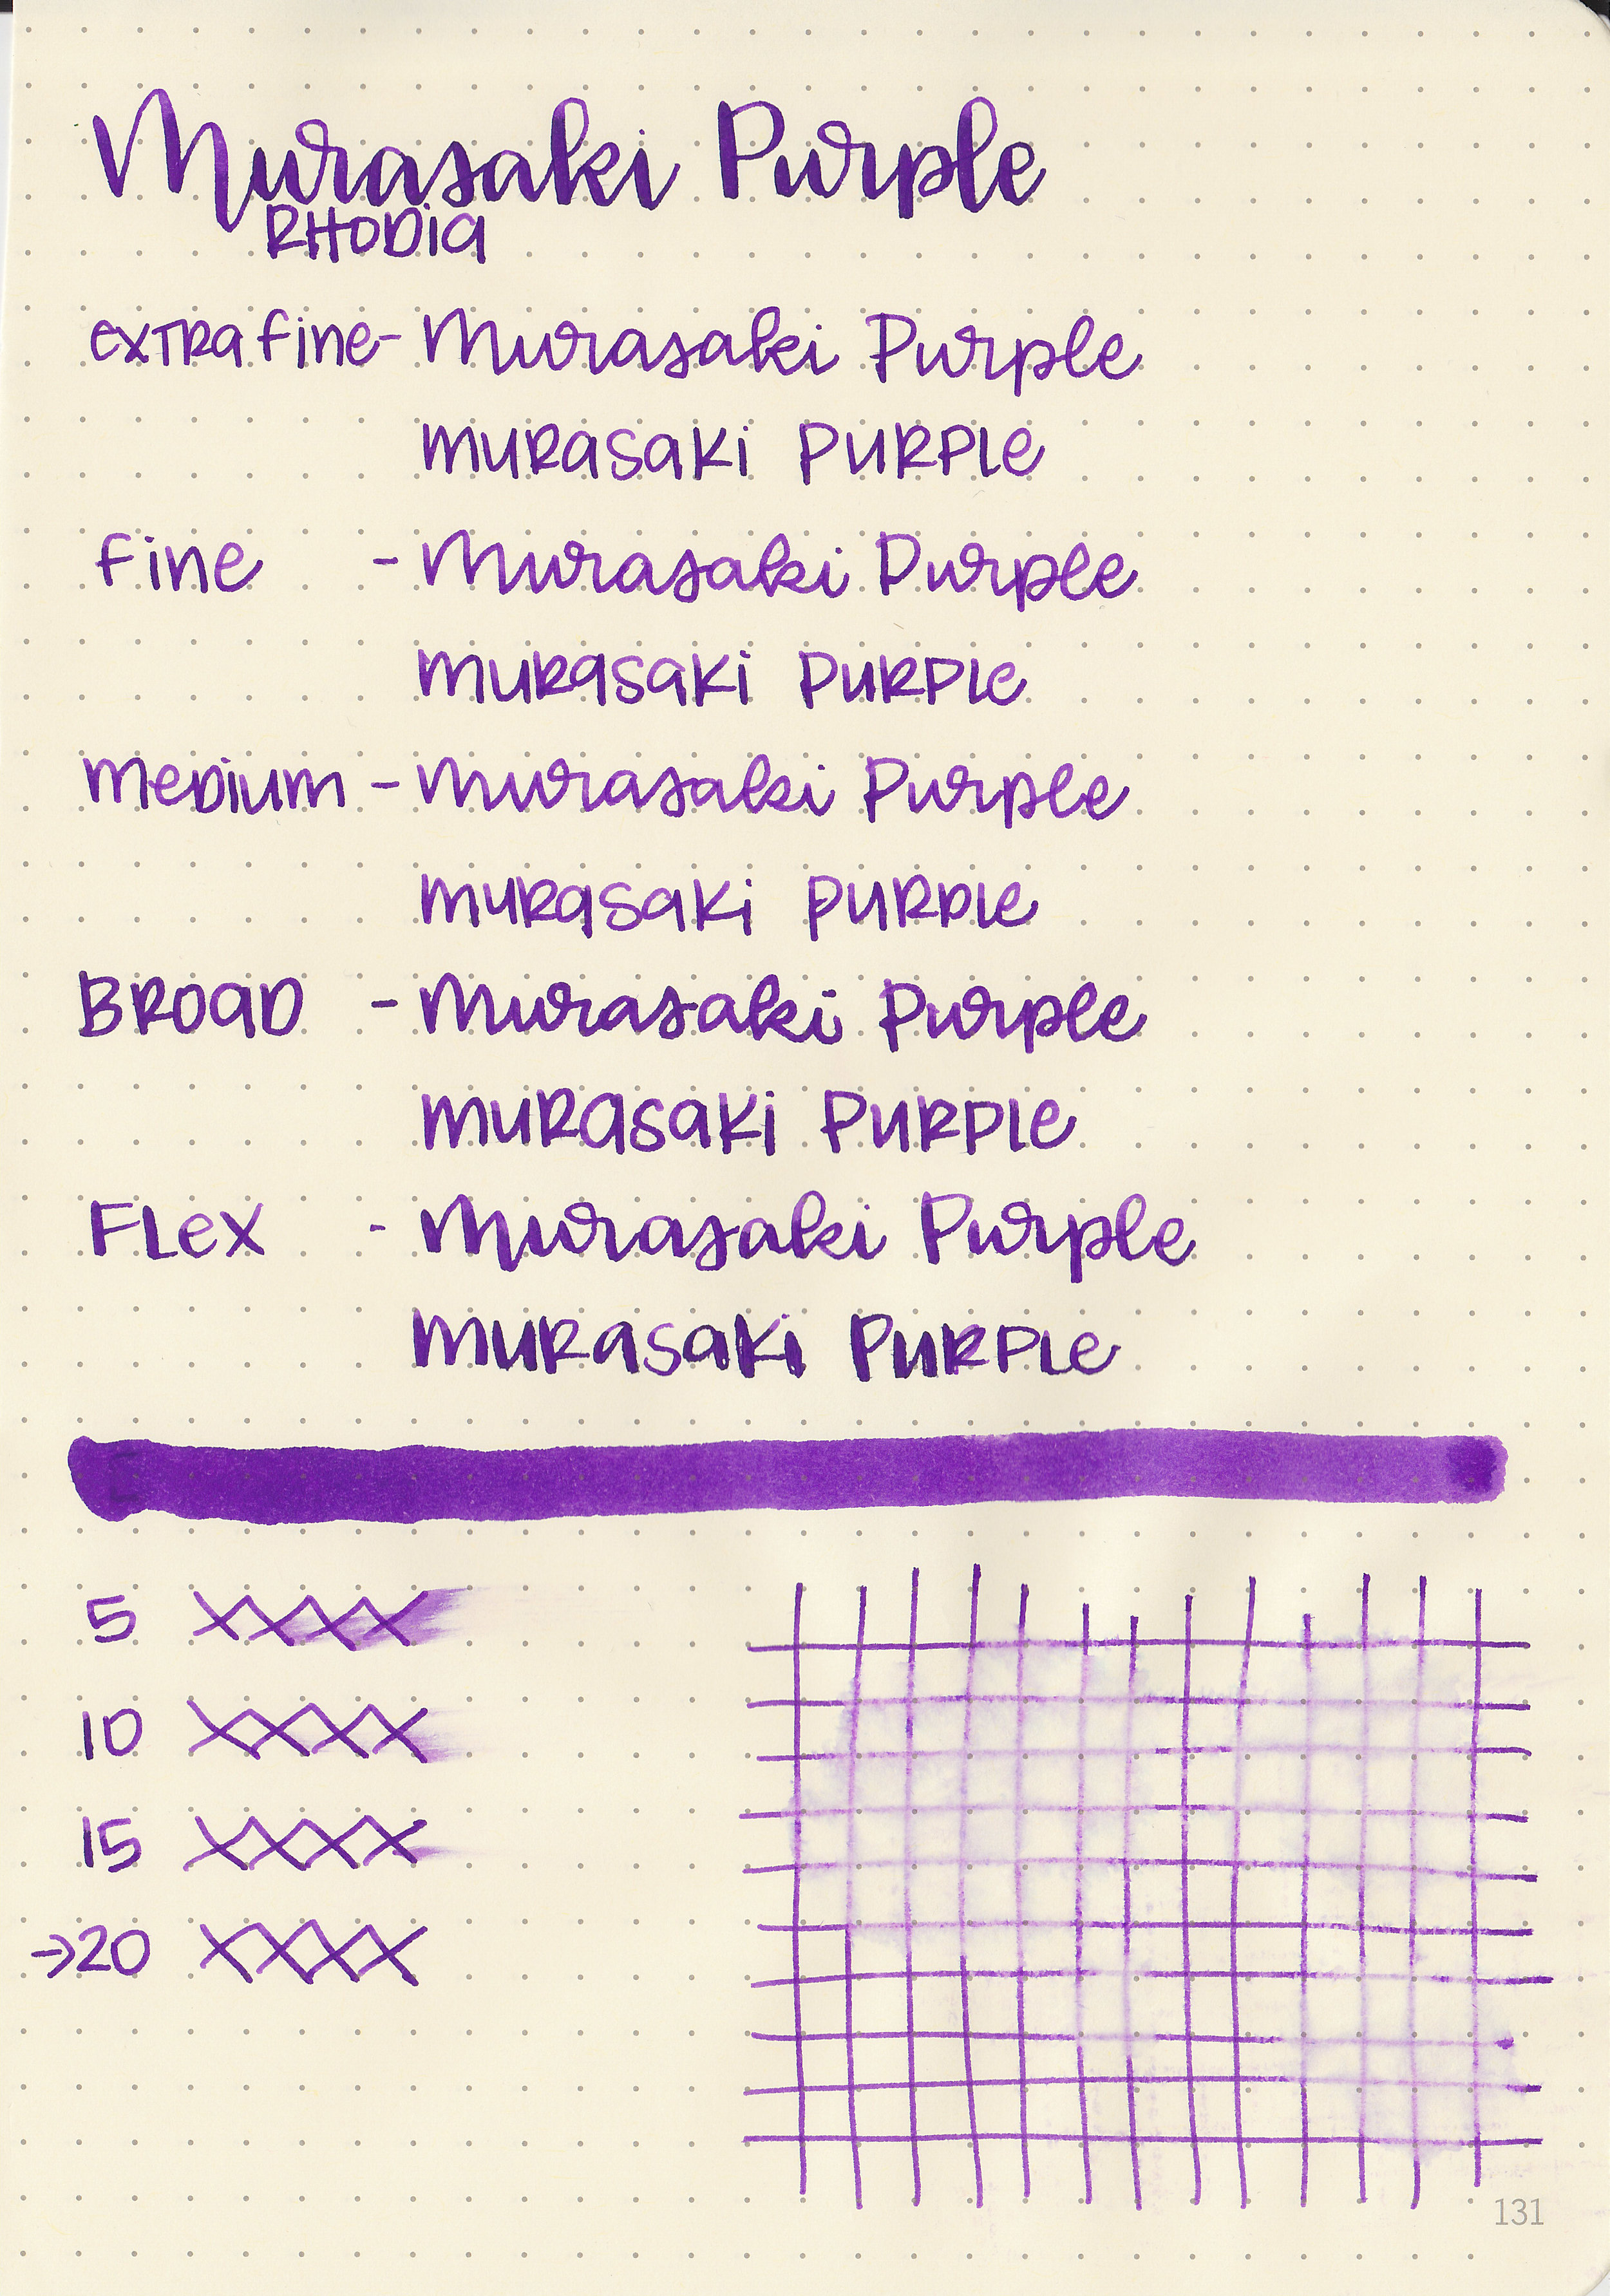 Murasaki Purple
RHODia
exTRa fine - Murasaki Purple
muRasaki PuRPLe
fine - Murasaki Purple
muRasaki PuRPLe
meDium - Murasaki Purple
muRasaki PuRPLe
BROaD - Murasaki Purple
muRasaki PuRPLe
FLex - Murasaki Purple
muRasaki PuRPLe
5 XXXX
10 XXXX
15 XXXX
→20 XXXX
131